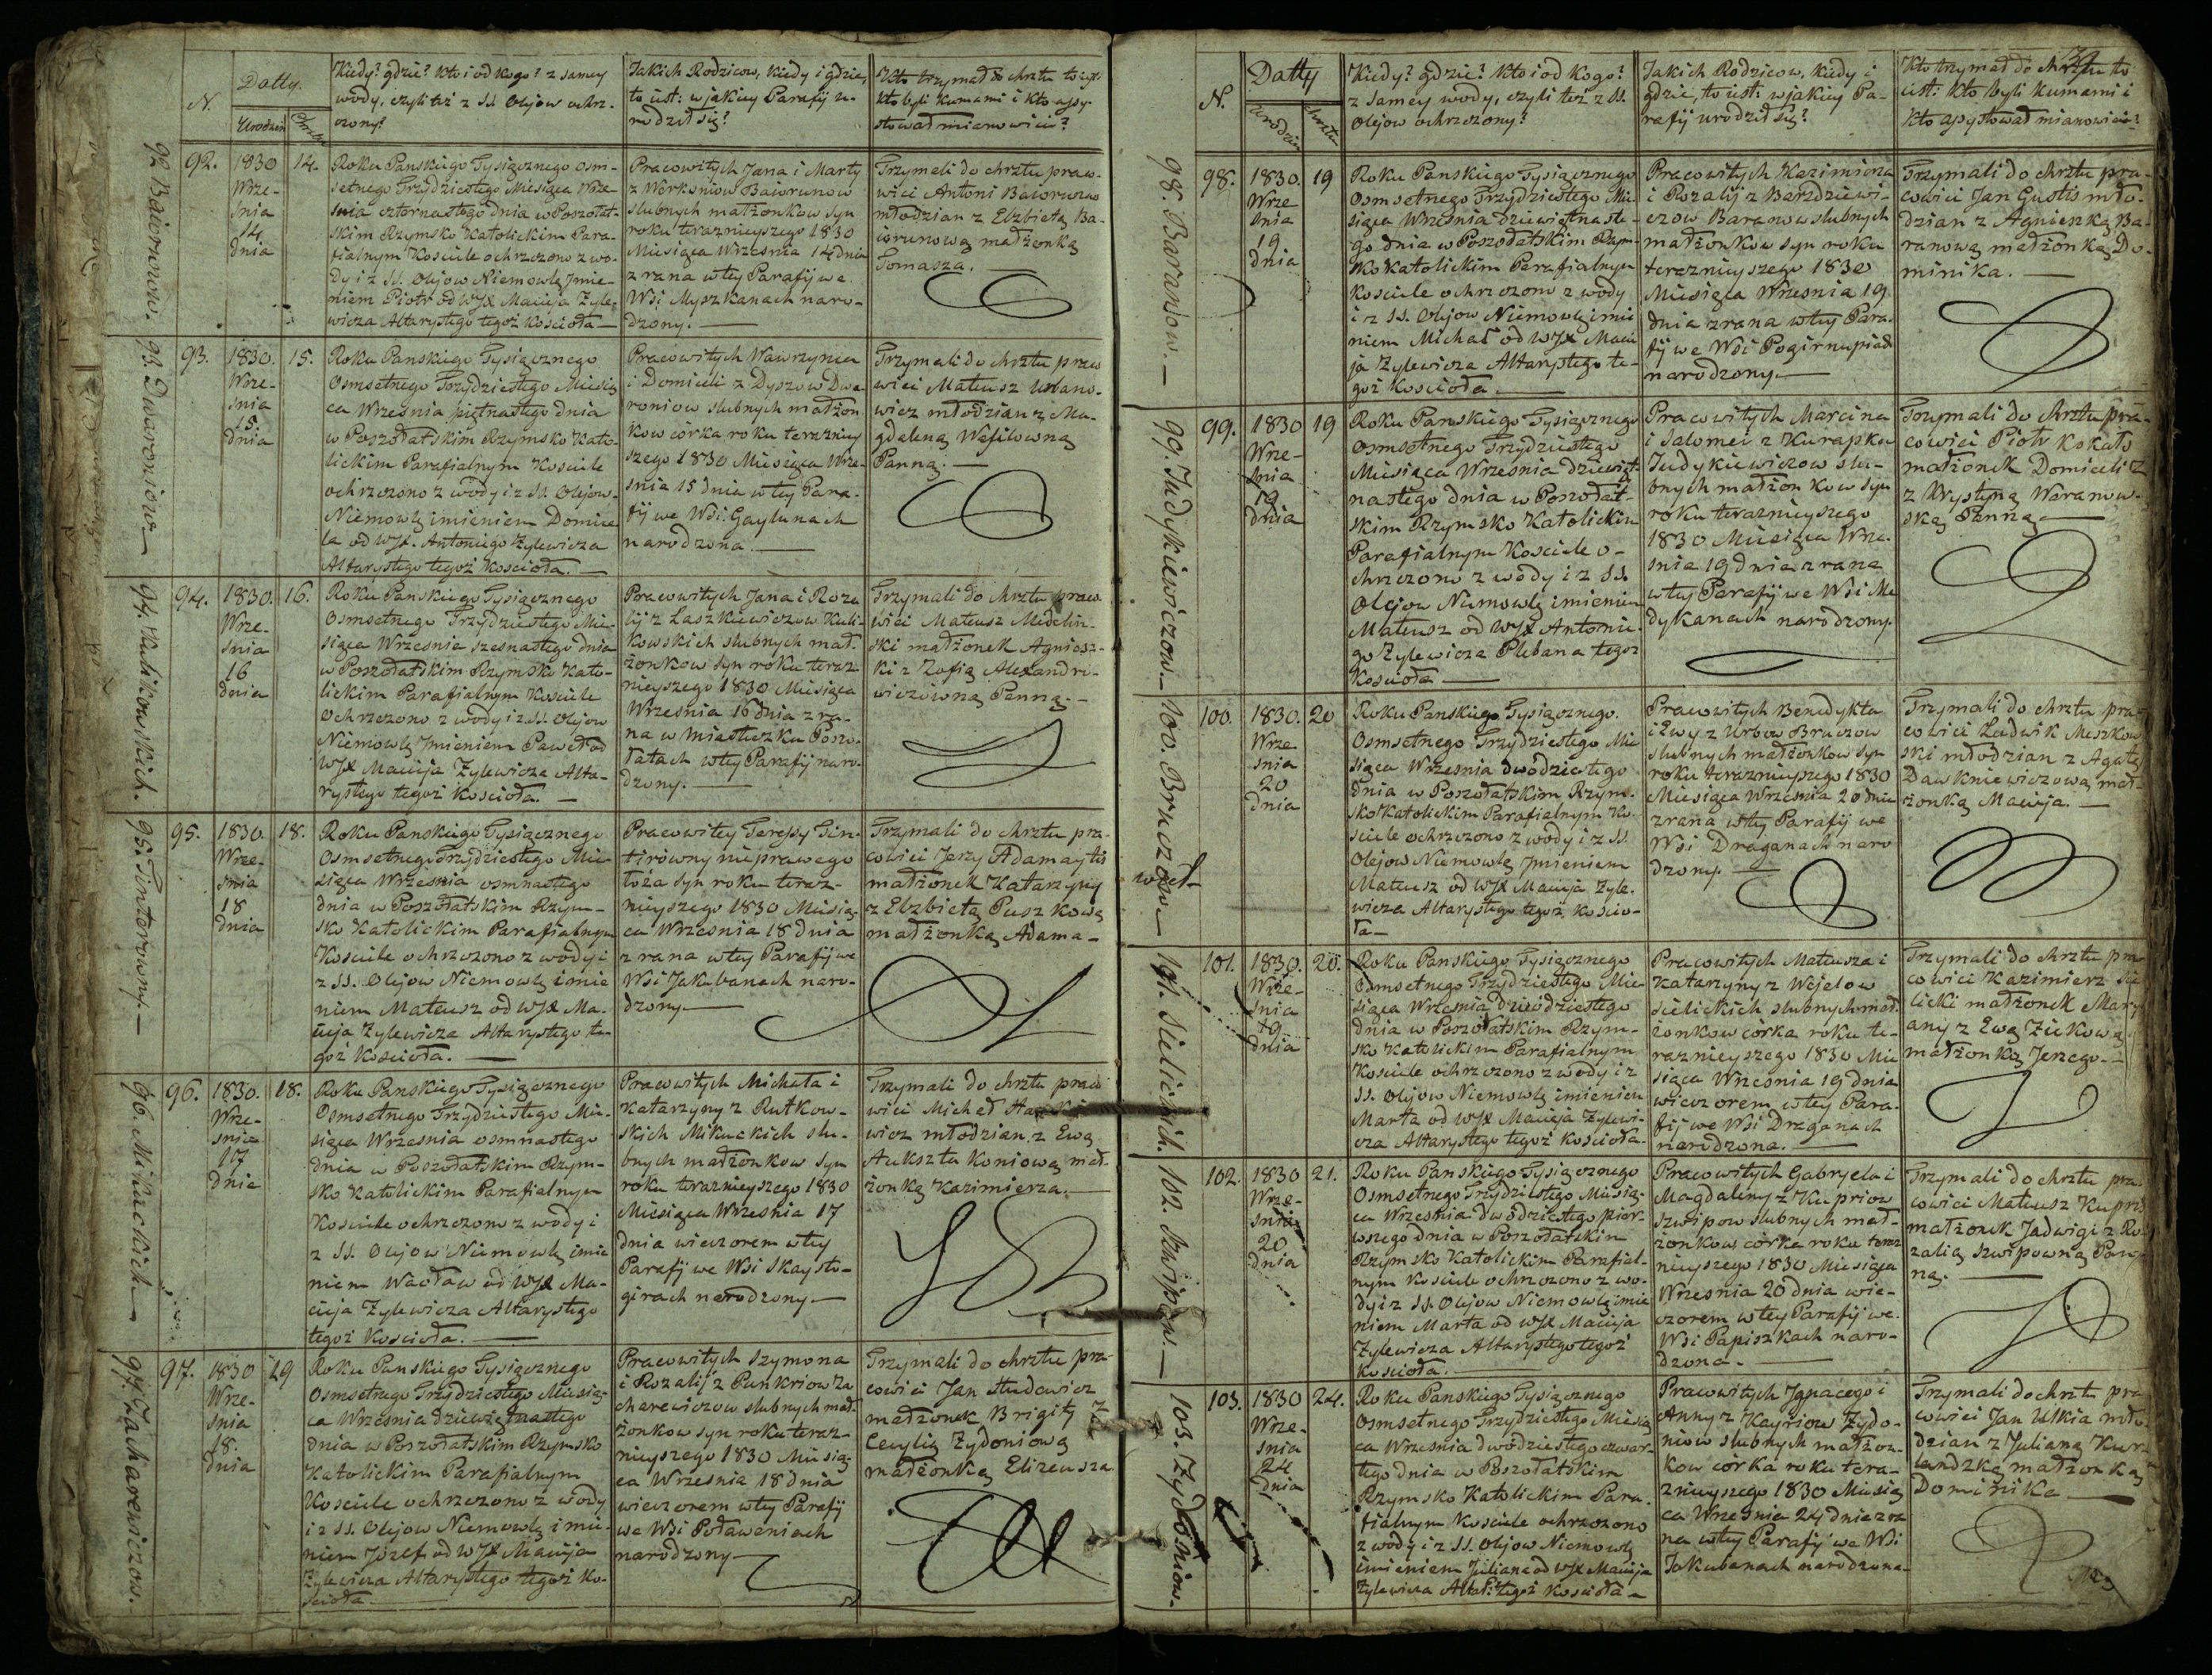 N.
Datty
Urodzin
Chrztu
Kiedy? gdzie? Kto i od Kogo? z samey
wody, czyli też z SS. Olejow ochrz-
czony?
Jakich Rodzicow, Kiedy i gdzie,
to iest: w jakiey Parafij u-
rodził się?
Kto trzymał do chrztu to iest:
Kto byli Kumami i Kto assy-
stował mianowicie?
92 Baiorunow.
92.
1830
Wrze-
śnia
14
dnia
14.
Roku Panskiego Tysiącznego osm-
setnego Trzydziestego Miesiąca Wrze-
śnia czternastego dnia w Poszołat-
skim Rzymsko Katolickim Para-
fialnym Kosciele ochrzczono z wo-
dy i z SS. Olejow Niemowlę Jmie-
niem Piotr od WJX Macieja Żyle-
wicza Altarystego tegoż Kościoła —
Pracowitych Jana i Marty
z Workoniow Baiorunow
slubnych małżonkow syn
roku teraznieyszego 1830
Miesiąca Września 14 dnia
z rana w tey Parafij we
Wsi Myszkanach naro-
dzony. —
Trzymali do chrztu praco-
wici Antoni Baiorunow
młodzian z Elzbietą Ba-
iorunową małżonką
Tomasza. —
93. Dwaroniow —
93.
1830.
Wrze-
śnia
15.
dnia
15.
Roku Panskiego Tysiącznego
Osmsetnego Trzydziestego Miesią
ca Września piętnastego dnia
w Poszołatskim Rzymsko Kato-
lickim Parafialnym Kosciele
ochrzczono z wody i z SS. Olejow.
Niemowlę imieniem Domice
la od WJX. Antoniego Żylewicza
Altarystego tegoż Kościoła. —
Pracowitych Wawrzynca
i Domiceli z Dyszow Dwa-
roniow slubnych małżon
kow córka roku terazniey
szego 1830 Miesiąca Wrze-
śnia 15 dnia w tey Para-
fij we Wsi Gaylunach
narodzona. —
Trzymali do chrztu praco
wici Mateusz Urbano-
wicz młodzian z Ma-
gdaleną Wasilowną
Panną. —
94. Kulikowskich.
94.
1830.
Wrze-
śnia
16
dnia
16.
Roku Panskiego Tysiącznego
Osmsetnego Trzydziestego Mie-
siąca Wrzesnia szesnastego dnia
w Poszołatskim Rzymsko Kato-
lickim Parafialnym Kosciele
Ochrzczono z wody i z SS. Olejow
Niemowlę Jmieniem Paweł od
WJX Macieja Żylewicza Alta-
rystego tegoż Kosciola. —
Pracowitych Jana i Roza
lij z Laszkiewiczow Kuli-
kowskich slubnych mał-
żonkow syn roku teraz-
nieyszego 1830 Miesiąca
Wrzesnia 16 dnia z ra-
na w Miasteczku Poszo-
łatach w tey Parafij naro-
dzony. —
Trzymali do chrztu praco
wici Mateusz Medelin-
ski małżonek Agniesz-
ki z Zofią Alexandro-
wiczówną Panną. —
95. Ginterowny. —
95.
1830.
Wrze-
śnia
18
dnia
18.
Roku Panskiego Tysiącznego
Osmsetnego Trzydziestego Mie
siąca Września osmnastego
dnia w Poszołatskim Rzym-
sko Katolickim Parafialnym
Kosciele ochrzczono z wody i
z SS. Olejow Niemowlę imie
niem Mateusz od WJX Ma-
cieja Żylewicza Altarystego te-
goż Kościoła. —
Pracowitey Teressy Gin-
tirówny nieprawego
łoża syn roku teraz-
nieyszego 1830 Miesią-
ca Wrzesnia 18 dnia
z rana w tey Parafij we
Wsi Jakubanach naro-
dzony —
Trzymali do chrztu pra-
cowici Jerzy Adamaytis
małżonek Katarzyny
z Elzbietą Puszkową
małżonką Adama —
96. Mikuckich —
96.
1830.
Wrze-
śnia
17
dnia
18.
Roku Panskiego Tysiącznego
Osmsetnego Trzydziestego Mie-
siąca Września osmnastego
dnia w Poszołatskim Rzym-
sko Katolickim Parafialnym
Kosciele ochrzczono z wody i
z SS. Olejow Niemowlę imie
niem Wacław od WJX Ma-
cieja Żylewicza Altarystego
tegoż Kościoła. —
Pracowitych Michała i
Katarzyny z Rutkow-
skich Mikuckich slu-
bnych małżonkow syn
roku teraznieyszego 1830
Miesiąca Września 17
dnia wieczorem w tey
Parafij we Wsi Skaysto-
girach narodzony —
Trzymali do chrztu praco
wici Michał
wicz młodzian z Ewą
Auksztakoniową mał-
żonką Kazimierza. —
97. Zacharewiczow.
97.
1830
Wrze-
śnia
18.
dnia
19
Roku Panskiego Tysiącznego
Osmsetnego Trzydziestego Miesią-
ca Września dziewiętnastego
dnia w Poszołatskim Rzymsko
Katolickim Parafialnym
Kosciele ochrzczono z wody
i z SS. Olejow Niemowlę imie-
niem Józef od WJX Macieja
Żylewicza Altarystego tegoż Ko-
ścioła. —
Pracowitych Szymona
i Rozalij z Punkriow Za
charewiczow slubnych mał-
żonkow syn roku teraz-
nieyszego 1830 Miesią-
ca Września 18 dnia
wieczorem w tey Parafij
we Wsi Poławeniach
narodzony —
Trzymali do chrztu pra-
cowici Jan Studewicz
małżonek Brigity z
Cecylią Żydoniową
małżonką Elizeusza
N.
Datty
Urodzin
Chrztu
Kiedy? gdzie? Kto i od Kogo?
z samey wody, czyli też z SS.
Olejow ochrzczony?
Jakich Rodzicow, Kiedy i
gdzie, to iest: w jakiey Pa-
rafij urodził się?
Kto trzymał do chrztu to
iest: Kto byli Kumami i
Kto assystował mianowicie?
98. Baranow. —
98.
1830.
Wrze
śnia
19
dnia
19
Roku Panskiego Tysiącznego
Osmsetnego Trzydziestego Mie-
siąca Wrzesnia dziewiętnaste-
go dnia w Poszołatskim Rzym-
sko Katolickim Parafialnym
Kosciele ochrzczono z wody
i z SS. Olejow Niemowlę imie
niem Michał od WJX Macie
ja Żylewicza Altarystego te-
goż Kościoła —
Pracowitych Kazimierza
i Rozalij z Barzdziewi-
czow Baranow slubnych
małżonkow syn roku
teraznieyszego 1830
Miesiąca Wrzesnia 19
dnia z rana w tey Para-
fij we Wsi Pogirnupiach
narodzony —
Trzymali do chrztu pra-
cowici Jan Gustis mło-
dzian z Agnieszką Ba-
ranową małżonką Do-
minika. —
99. Judykiewiczow. —
99.
1830
Wrze-
śnia
19
dnia
19
Roku Panskiego Tysiącznego
Osmsetnego Trzydziestego
Miesiąca Września dziewięt-
nastego dnia w Poszołat-
skim Rzymsko Katolickim
Parafialnym Kosciele o-
chrzczono z wody i z SS.
Olejow Niemowlę imieniem
Mateusz od WJX Antonie-
go Żylewicza Plebana tegoż
Kościoła —
Pracowitych Marcina
i Salomei z Kurapku
Judykiewiczow slu-
bnych małżonkow syn
roku teraznieyszego
1830 Miesiąca Wrze-
śnia 19 dnia z rana
w tey Parafij we Wsi Me
dykanach narodzony.
Trzymali do chrztu pra-
cowici Piotr Kokats
małżonek Domiceli z
z Krystyną Waranow-
ską Panną —
100. Bruczow —
100.
1830.
Wrze
śnia
20
dnia
20
Roku Panskiego Tysiącznego.
Osmsetnego Trzydziestego Mie
siąca Września dwódziestego
dnia w Poszołatskim Rzym-
sko Katolickim Parafialnym Ko-
sciele ochrzczono z wody i z SS.
Olejow Niemowlę Jmieniem
Mateusz od WJX Macieja Żyle-
wicza Altarystego tegoż Kościo-
ła —
Pracowitych Benedykta
i Ewy z Urbow Bruczow
slubnych małżonkow syn
roku teraznieyszego 1830
Miesiąca Wrzesnia 20 dnia
z rana w tey Parafij we
Wsi Draganach naro
dzony. —
Trzymali do chrztu pra-
cowici Ludwik Meszkow
ski młodzian z Agatą
Dawkniewiczową mał-
żonką Macieja. —
101. Sielickich.
101.
1830.
Wrze-
śnia
19
dnia
20.
Roku Panskiego Tysiącznego
Osmsetnego Trzydziestego Mie-
siąca Wrzesnia dwódziestego
dnia w Poszołatskim Rzym-
sko Katolickim Parafialnym
Kosciele ochrzczono z wody i z
SS. Olejow Niemowlę imieniem
Marta od WJX Macieja Żylewi-
cza Altarystego tegoż Kościoła.
Pracowitych Mateusza i
Katarzyny z Wejelow
Sielickich slubnych mał-
żonkow corka roku te-
raznieyszego 1830 Mie
siąca Wrzesnia 19 dnia
wieczorem w tey Para-
fij we Wsi Draganach
narodzona. —
Trzymali do chrztu pra
cowici Kazimierz Sie
licki małżonek Mary
anny z Ewą Ziekową
małżonką Jerzego. —
102. Szwipow. —
102.
1830
Wrze-
śnia
20
dnia
21.
Roku Panskiego Tysiącznego
Osmsetnego Trzydziestego Miesią-
ca Wrzesnia dwódziestego pier-
wszego dnia w Poszołatskim
Rzymsko Katolickim Parafial-
nym Kosciele ochrzczono z wo-
dy i z SS. Olejow Niemowlę imie
niem Marta od WJX Macieja
Żylewicza Altarystego tegoż
Kościoła. —
Pracowitych Gabryela i
Magdaleny z Kupriow
Szwipow slubnych mał-
żonkow córka roku teraz
nieyszego 1830 Miesiąca
Wrzesnia 20 dnia wie-
czorem w tey Parafij we
Wsi Papiszkach naro-
dzona. —
Trzymali do chrztu pra-
cowici Mateusz Kupris
małżonek Jadwigi z Ro-
zalią Szwipowną Pan-
ną. —
103. Żydoniow.
103.
1830
Wrze-
śnia
24
dnia
24.
Roku Panskiego Tysiącznego
Osmsetnego Trzydziestego Miesią
ca Wrzesnia dwódziestego czwar-
tego dnia w Poszołatskim
Rzymsko Katolickim Para-
fialnym Kosciele ochrzczono
z wody i z SS. Olejow Niemowlę
imieniem Juliana od WJX Macieja
Żylewicza Altar: tegoż Kościoła —
Pracowitych Jgnacego i
Anny z Kayriow Żydo-
niow slubnych małżon-
kow corka roku tera-
znieyszego 1830 Miesią
ca Wrzesnia 24 dnia z ra
na w tey Parafij we Wsi
Jakubanach narodzona
Trzymali do chrztu pra
cowici Jan Ulkia mło-
dzian z Julianą Kur-
landzką małżonką
Dominika —